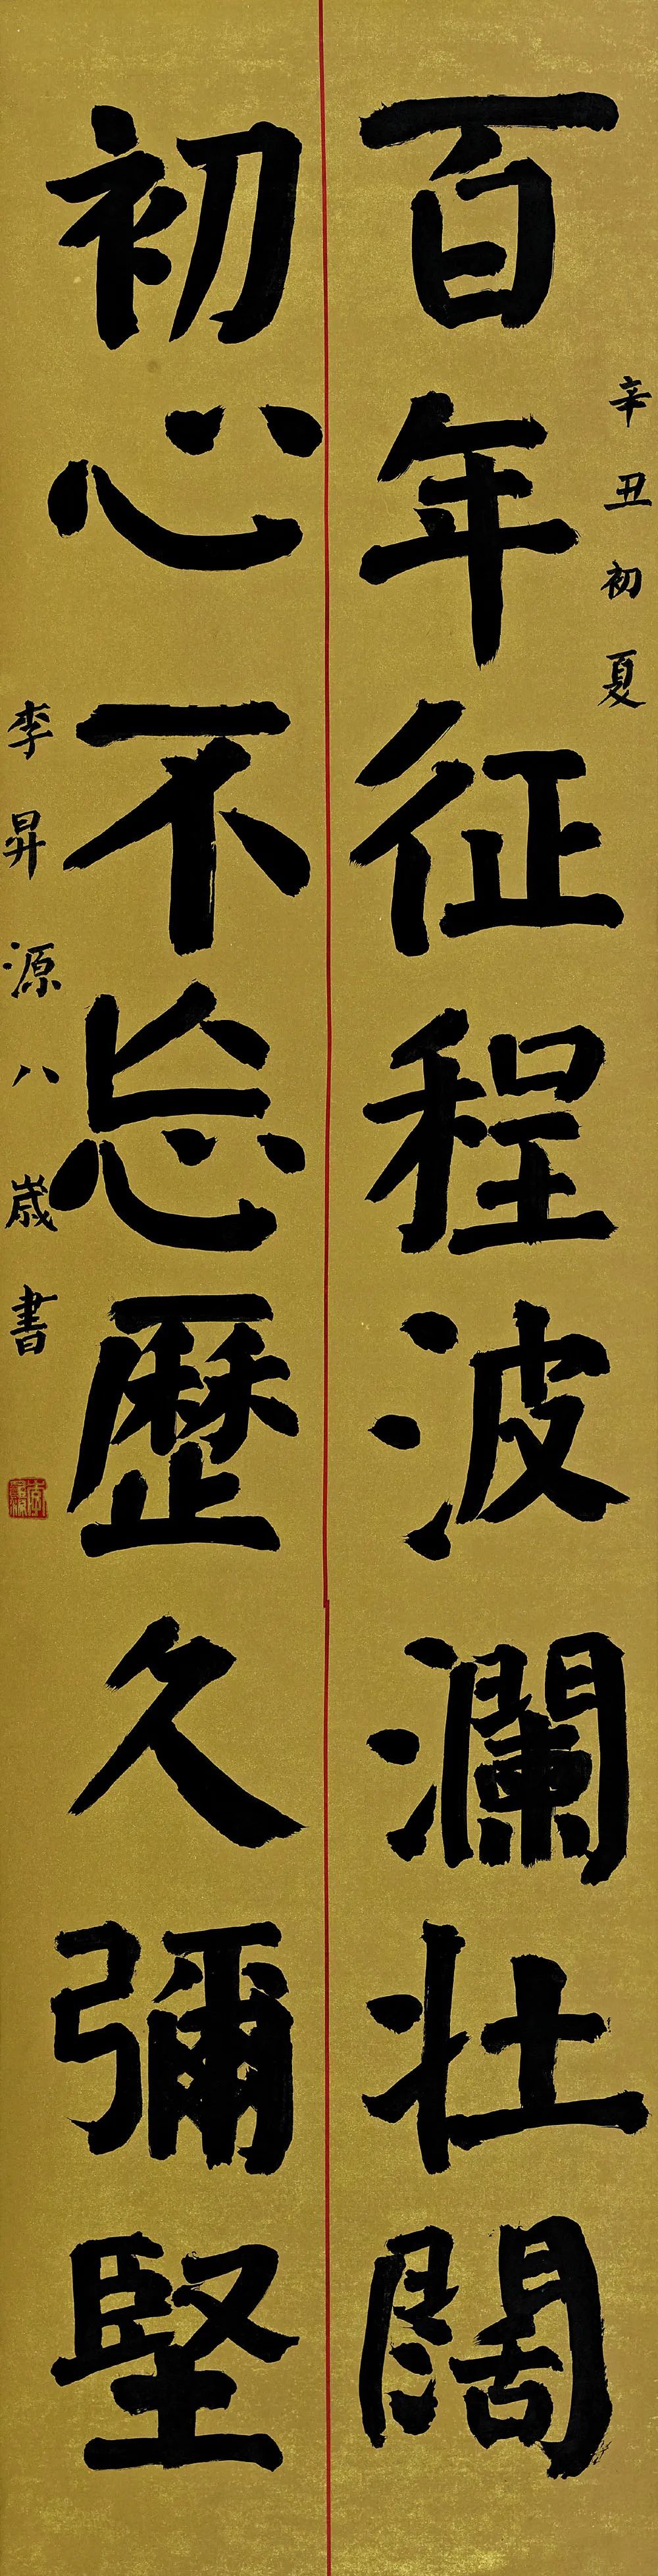 辛丑初夏
百年征程波瀾壯闊
初心不忘歷久彌堅
李昇源八歲書